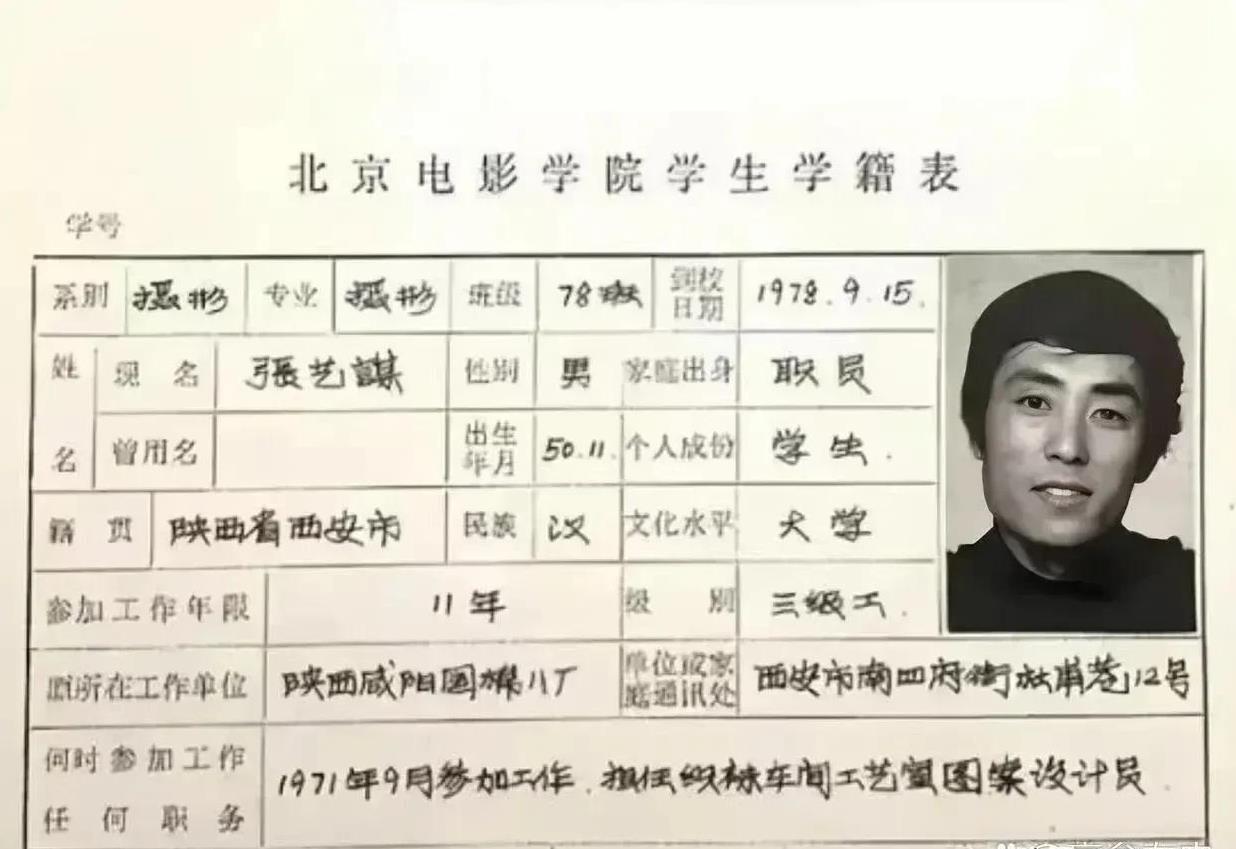 北京电影学院学生学籍表
学号
系别 摄影 专业 摄影 班级 78班 到校日期 1978.9.15.
姓名 现名 張艺謀 性别 男 家庭出身 职员
曾用名 出生年月 50.11. 个人成份 学生.
籍贯 陕西省西安市 民族 汉 文化水平 大学
参加工作年限 11年 级别 三级工.
原所在工作单位 陕西咸阳国棉八厂 单位或家庭通讯处 西安市南四府街杜甫巷12号
何时参加工作任何职务 1971年9月参加工作.担任织袜车间工艺室图案设计员.